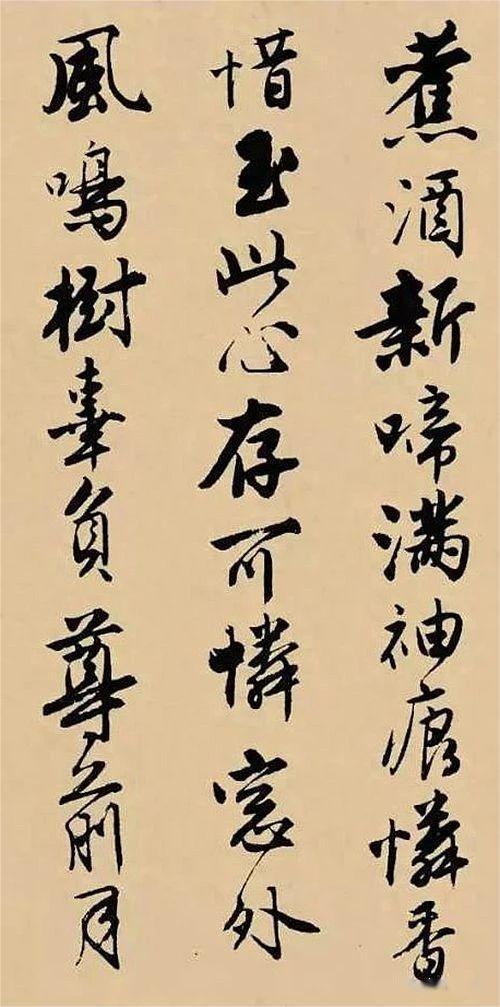 舊酒新啼滿袖痕憐香
惜玉此心存可憐窓外
風鳴樹辜負尊前月